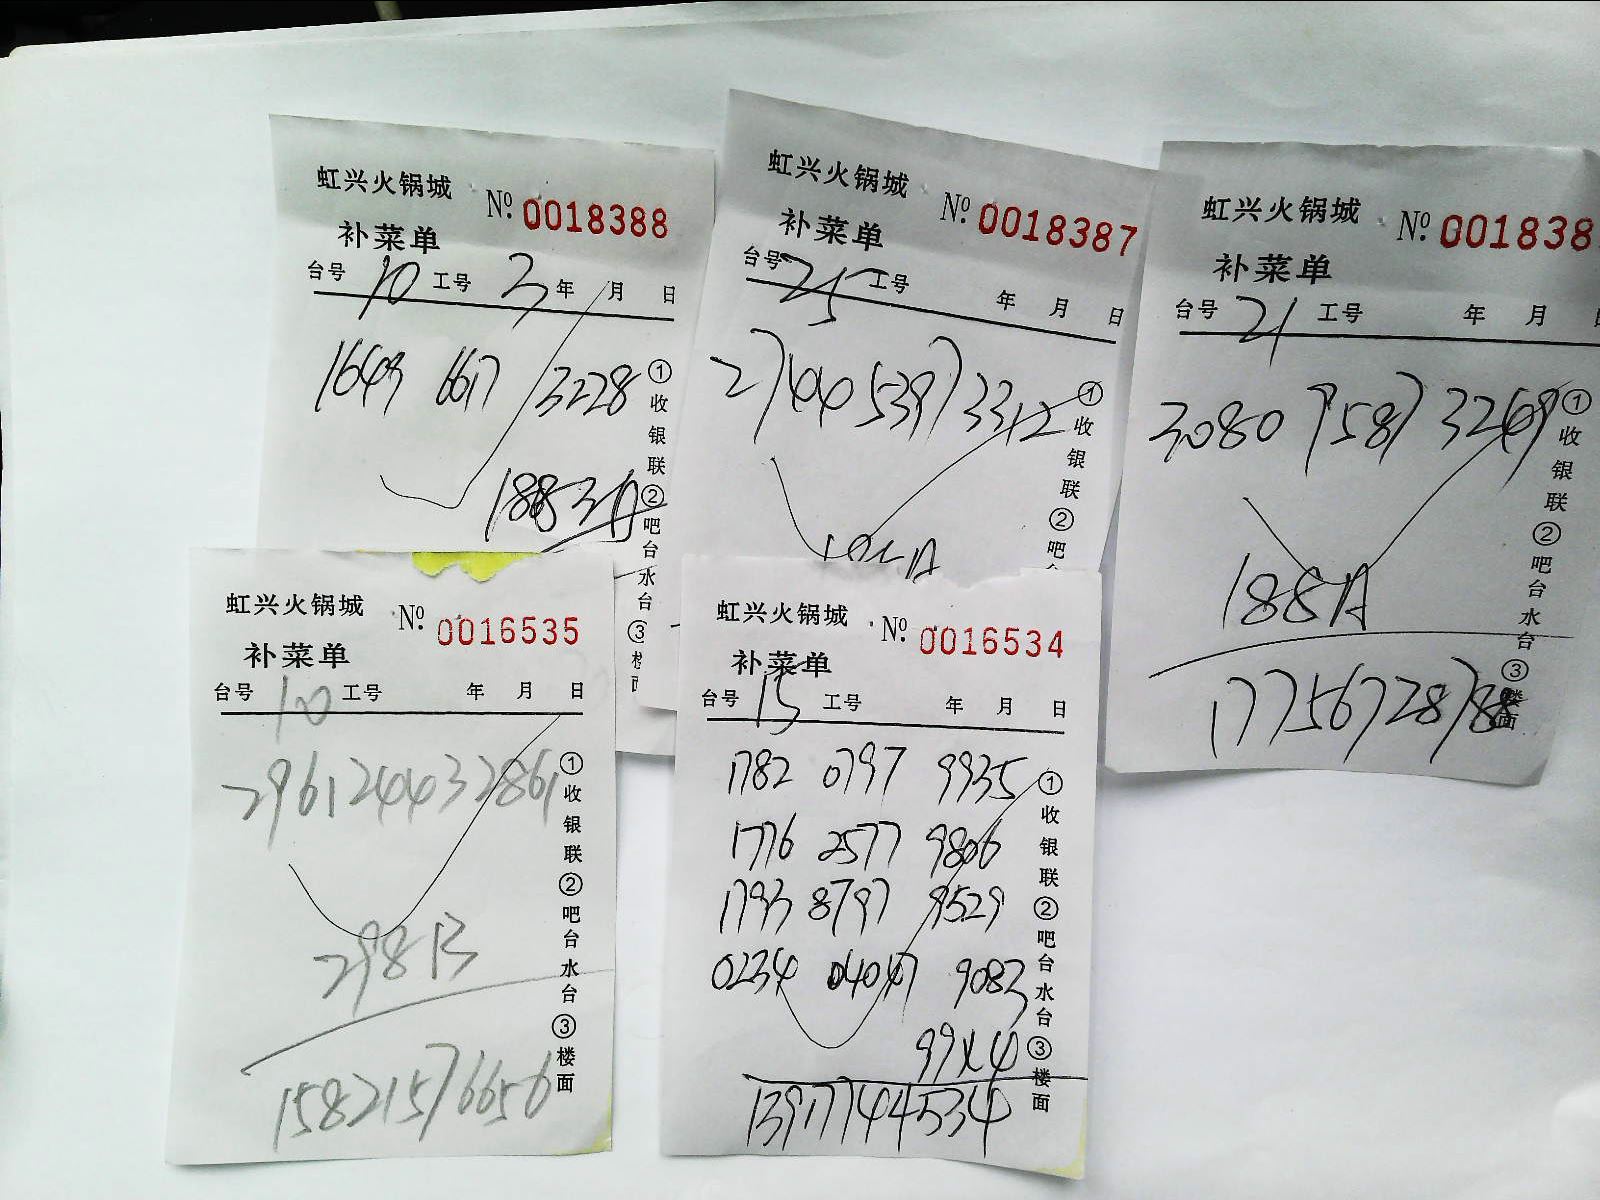 虹兴火锅城 No. 0018388
补菜单
台号 10 工号 3 年 月 日
1643 6617 3228
188
①收银联②吧台水台③
虹兴火锅城 No. 0018387
补菜单
台号 25 工号 年 月 日
2744 5397 3312
①收银联②吧
虹兴火锅城 No. 001838
补菜单
台号 21 工号 年 月 日
3080 9587 3249
188A
17756728788
①收银联②吧台水台③楼面
虹兴火锅城 No. 0016535
补菜单
台号 10 工号 年 月 日
296124432861
298B
15821576656
①收银联②吧台水台③楼面
虹兴火锅城 No. 0016534
补菜单
台号 15 工号 年 月 日
1782 0797 9935
1776 2577 9806
1793 8797 9529
0234 04047 9083
99x4
13917744534
①收银联②吧台水台③楼面